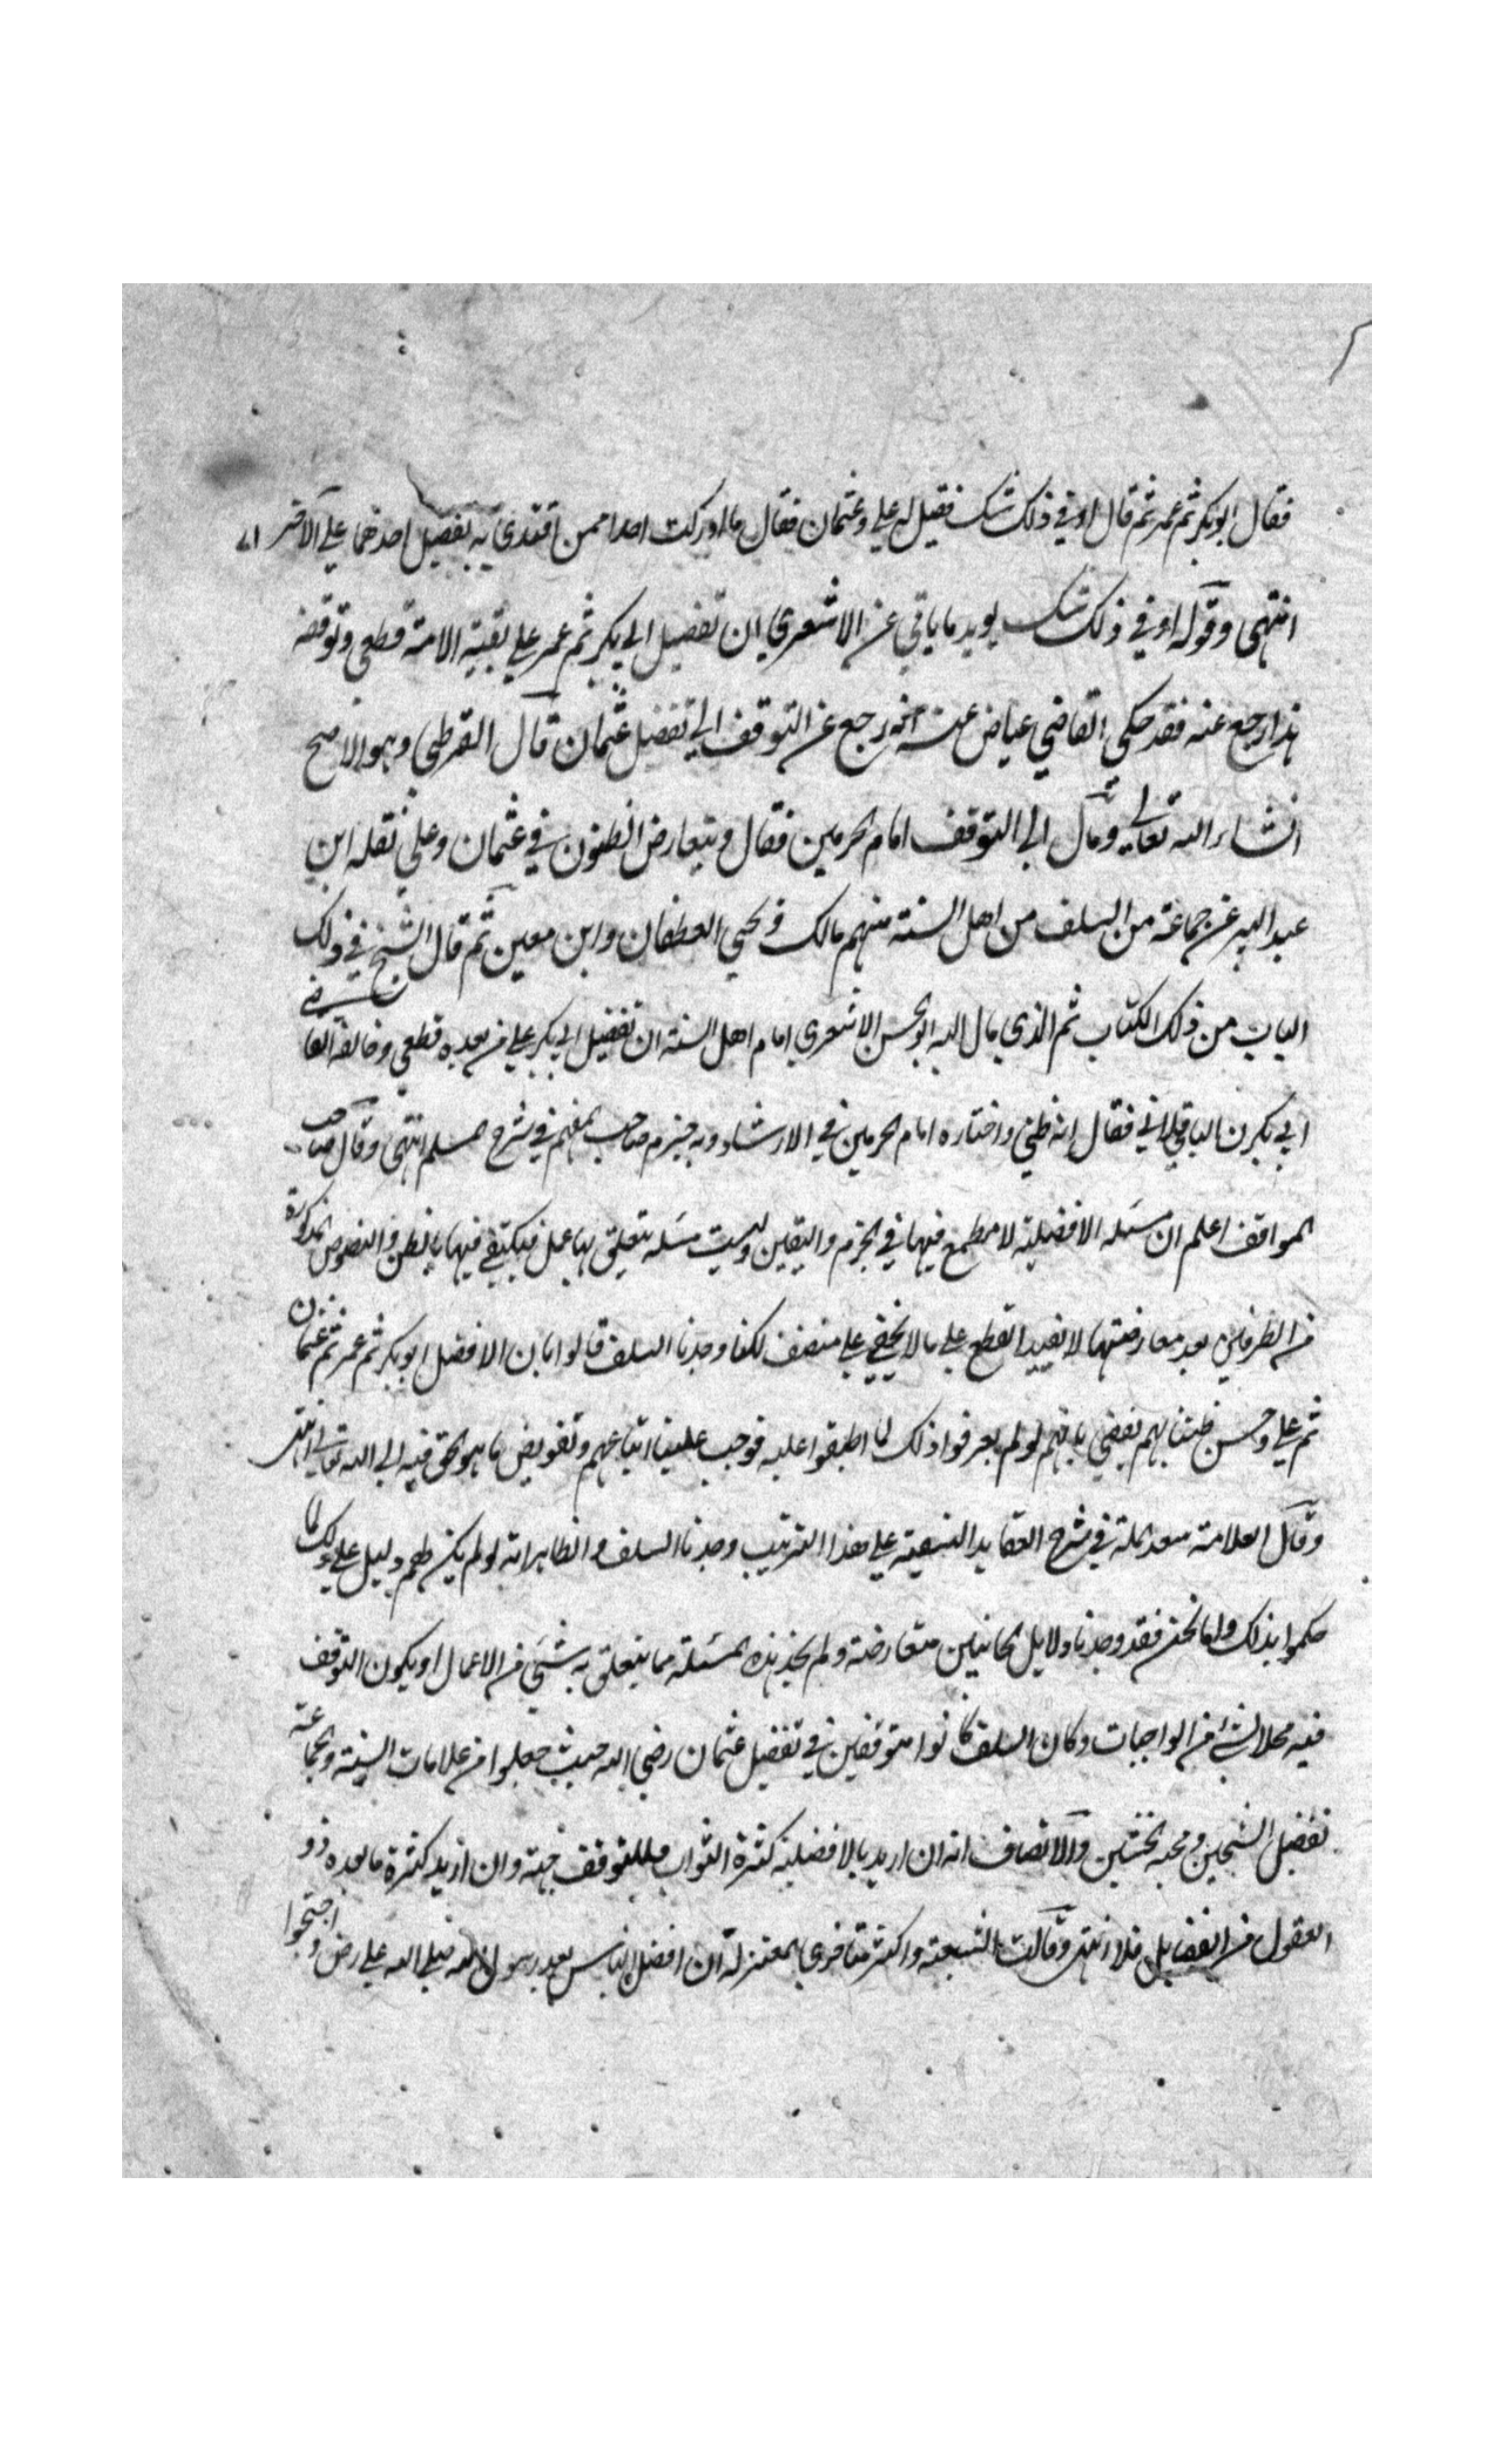 فقال ابوبكر ثم عمر ثم قال او في ذلك شك فقيل له علي وعثمان فقال ما ادركت احدا ممن اقتدي به بفضيل احدهما علي الآخر
انتهى وقوله او في ذلك شك يويد ما ياتي عن الاشعري ان تفضيل ابي بكر ثم عمر علي بقية الامة قطعي وتوقفه
هذا رجع عنه فقد حكى القاضي عياض عنه انه رجع عن التوقف الي تفضيل عثمان قال القرطبي وهو الاصح
انشاء الله تعالي ومال الي التوقف امام الحرمين فقال وتتعارض الظنون في عثمان وعلي نقله ابن
عبد البر عن جماعة من السلف من اهل السنة منهم مالك ويحيي القطان وابن معين ثم قال الشيخ في ذلك
الباب من ذلك الكتاب ثم الذي مال اليه ابو الحسن الاشعري امام اهل السنة ان تفضيل ابي بكر علي من بعده قطعي وخالفه القاضي
ابي بكر ن الباقلاني فقال انه ظني واختاره امام الحرمين في الارشاد وبه جزم صاحب المفهم في شرح مسلم انتهى وقال صاحب
المواقف اعلم ان مسئله الافضلية لا مطمع فيها في الجزم واليقين وليست مسئله يتعلق بها عمل فيكتفي فيها بالظن والنصوص المذكورة
من الطرفين بعد معارضتها لا تفيد القطع علي ما لا يخفي علي منصف لكنا وجدنا السلف قالوا بان الافضل ابوبكر ثم عمر ثم عثمان
ثم علي وحسن ظننا بهم يقضي بانهم لو لم يعرفوا ذلك لما اطبقوا عليه فوجب علينا اتباعهم وتفويض ما هو الحق فيه الي الله تعالي انتهى
وقال العلامة سعد الملة في شرح العقايد النسفية علي هذا الترتيب وجدنا السلف والظاهر انه لو لم يكن لهم دليل علي ذلك لما
حكموا بذلك واما نحن فقد وجدنا دلايل الجانبين متعارضة ولم نجد هذه المسئلة مما يتعلق به شئ من الاعمال او يكون التوقف
فيه مخلا لشئ من الواجبات وكان السلف كانوا متوقفين في تفضيل عثمان رضي الله حيث جعلوا من علامات السنة والجماعة
تفضيل الشيخين ومحبه الختنين والانصاف انه ان اريد بالافضلية كثرة الثواب فللتوقف جهة وان اريد كثرة ما يعده ذو
العقول من الفضايل فلا انتهى وقالت الشيعة واكثر متاخري المعتزلة ان افضل الناس بعد رسول الله صلي الله علي رض واحتجوا